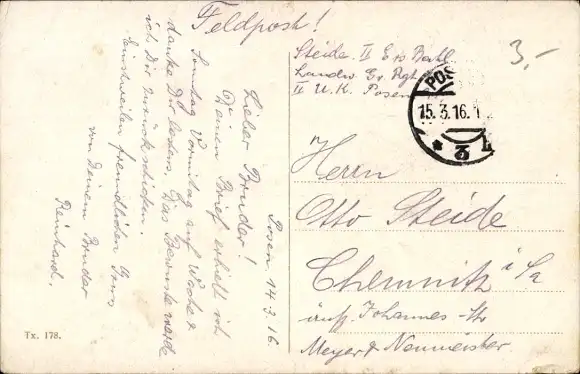 Feldpost!
Posen 14.3.16.
Lieber Bruder!
Deinen Brief erhielt ich
Sonntag Vormittag auf Wache &
danke Dir bestens. Das Bewußte werde
ich Dir zurückschicken.
Einstweilen freundlichen Gruß
von Deinem Bruder
Reinhard.
Steide II Ers. Batl.
Landw. Ers. Rgt.
II U.K. Posen
3,-
POS
15.3.16.1
* 3 L
Herrn
Otto Steide
Chemnitz i/Sa
äuß. Johannes-Str
Meyer & Neumeister
Tx. 178.